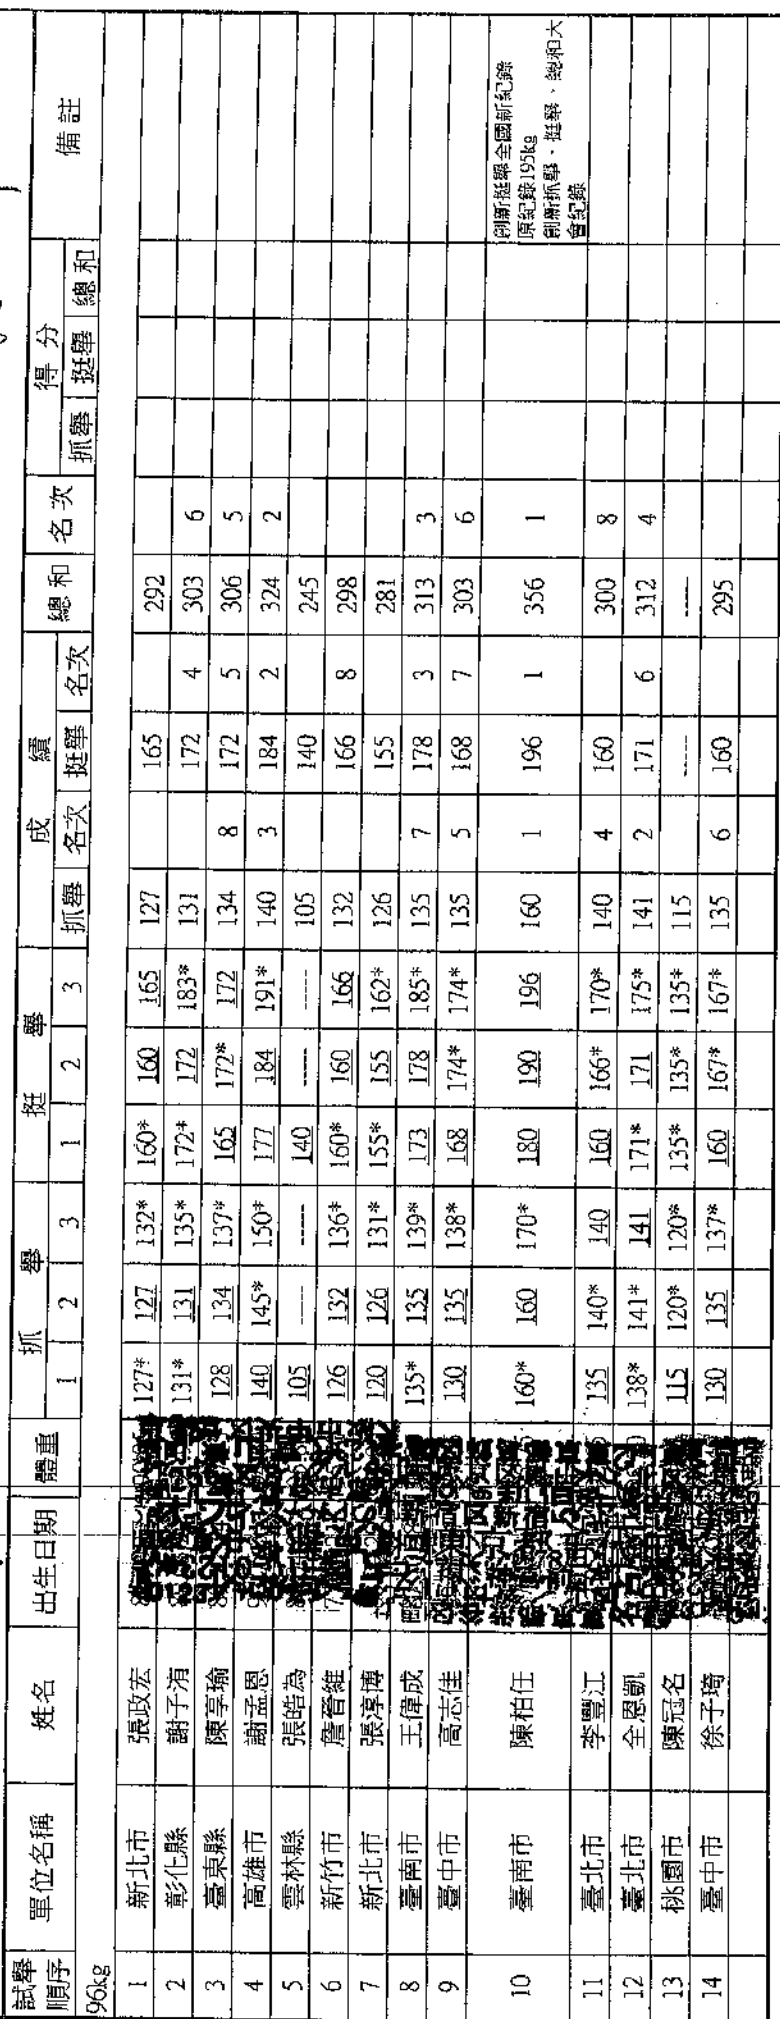 試舉順序 單位名稱 姓名 出生日期 體重 抓舉 挺舉 成績 總和 名次 得分 備註
1 2 3 1 2 3 抓舉 名次 挺舉 名次 抓舉 挺舉 總和
96kg
1 新北市 張政宏 127* 127 132* 160* 160 165 127 165 292
2 彰化縣 謝子洧 131* 131 135* 172* 172 183* 131 172 4 303 6
3 臺東縣 陳享瑜 128 134 137* 165 172* 172 134 8 172 5 306 5
4 高雄市 謝孟恩 140 145* 150* 177 184 191* 140 3 184 2 324 2
5 雲林縣 張皓為 105 ---- ---- 140 ---- ---- 105 140 245
6 新竹市 詹晉維 126 132 136* 160* 160 166 132 166 8 298
7 新北市 張淳博 120 126 131* 155* 155 162* 126 155 281
8 臺南市 王偉成 135* 135 139* 173 178 185* 135 7 178 3 313 3
9 臺中市 高志佳 130 135 138* 168 174* 174* 135 5 168 7 303 6
10 臺南市 陳柏任 160* 160 170* 180 190 196 160 1 196 1 356 1 創新挺舉全國新紀錄
原紀錄195kg
創新抓舉、挺舉、總和大
會紀錄
11 臺北市 李豐江 135 140* 140 160 166* 170* 140 4 160 300 8
12 臺北市 全恩凱 138* 141* 141 171* 171 175* 141 2 171 6 312 4
13 桃園市 陳冠名 115 120* 120* 135* 135* 135* 115 ---- ----
14 臺中市 徐子琦 130 135 137* 160 167* 167* 135 6 160 295